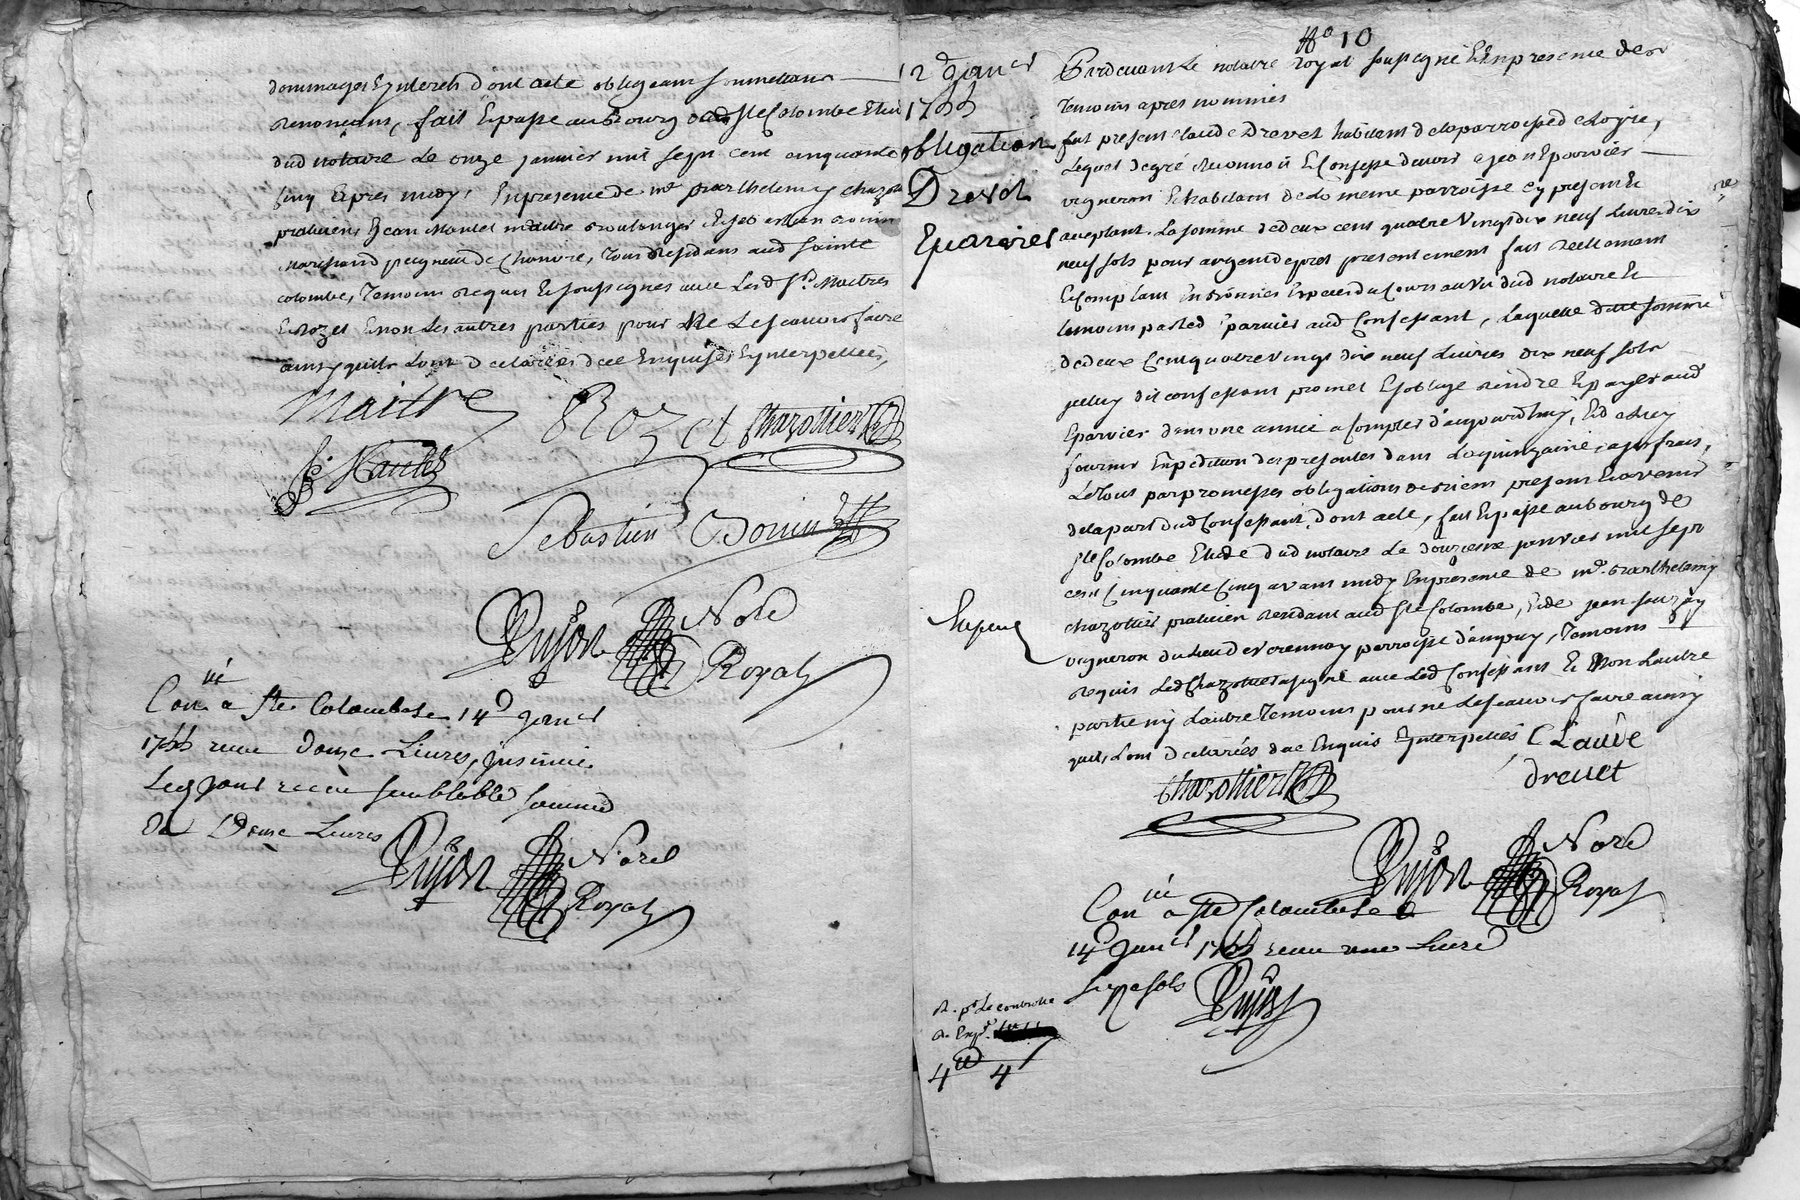 dommages Eynterets dont acte obligeans soumettans
Renonceans, fait Epasse au Bourg dud Ste Colombe Etude
dud notaire Le onze janvier mil sept cent cinquante
cinq Epres midy, Enpresence de me Barthelemy chazottier
praticien, Jean Nantet maitre Boulanger Et Sebastian Bonin
marchand peigneur de Chanvre, Tous Residans aud Sainte
colombe, Temoins Requis Et soussignés avec Lesd Srs Maitres
Et Rozet Enon Les autres parties pour Ne Lescavoir faire
ainsy quils Lont declarées de ce Enquises Eynterpellées,
Maitre
Rozet
Chazottier
J. Nantet
Sebastien Bonin
Dujon Nore
Royal
Con a Ste Colombe Le 14e Janer
1755 receu Douze Livres, jnsinué
Led jour receu semblable somme
De Douze Livres
Dujon Nore
Royal
No 10
12e Janer
1755
obligation
Drevet
Eparvier
Pardevant Le notaire Royal soussigné Etenpresence des
Temoins apres nommés
fut present claude Drevet habitant delaparroisse de Loyre,
Lequel degré Reconnoit Et Confesse devoir a Jean Eparvier
vigneron Ethabitant de La meme parroisse cy present Et
acceptant. La somme dedeux cens quatre Vingt dix neuf Livres dix
neuf sols pour argent depret presentement fait Reellement
Et Comptant En bonnes Especes du Cours au Vû dud notaire Et
temoins parled Eparvier aud Confessant, Laquelle ditte somme
dedeux Cent quatre vingt dix neuf Livres dix neuf sols
jceluy dit confessant promet Esoblige Rendre Epayer aud
Eparvier dans une année a Compter d'aujourdhuy, Et de Luy
fournir Expedition des presentes dans Laquinzaine, ases frais,
Le Tout par promesses obligations de Biens presens Et avenir
delapart dud Confessant, Dont acte, fait Epasse au bourg de
Ste Colombe Etude dud notaire Le douzieme janvier mil sept
cent Cinquante Cinq avant midy Enpresence de me Barthelemy
chazottier praticien Residant aud Ste Colombe, Et de jean
vigneron du Lieu de Verennay parroisse d'ampuy, Temoins
Requis Led Chazottier a signé avec Led Confessant Et Non Lautre
partie ny Lautre Temoins pour ne Lescavoir faire ainsy
quils Lont declarés de ce Enquis Eynterpellés
Claude
drevet
Expedié
Chazottier
Dujon Nore
Royal
Con a Ste Colombe Le
14e Janer 1755 receu une Livre
Seize sols Dujon
R. pr Le controlle
R. Expn
4# 4